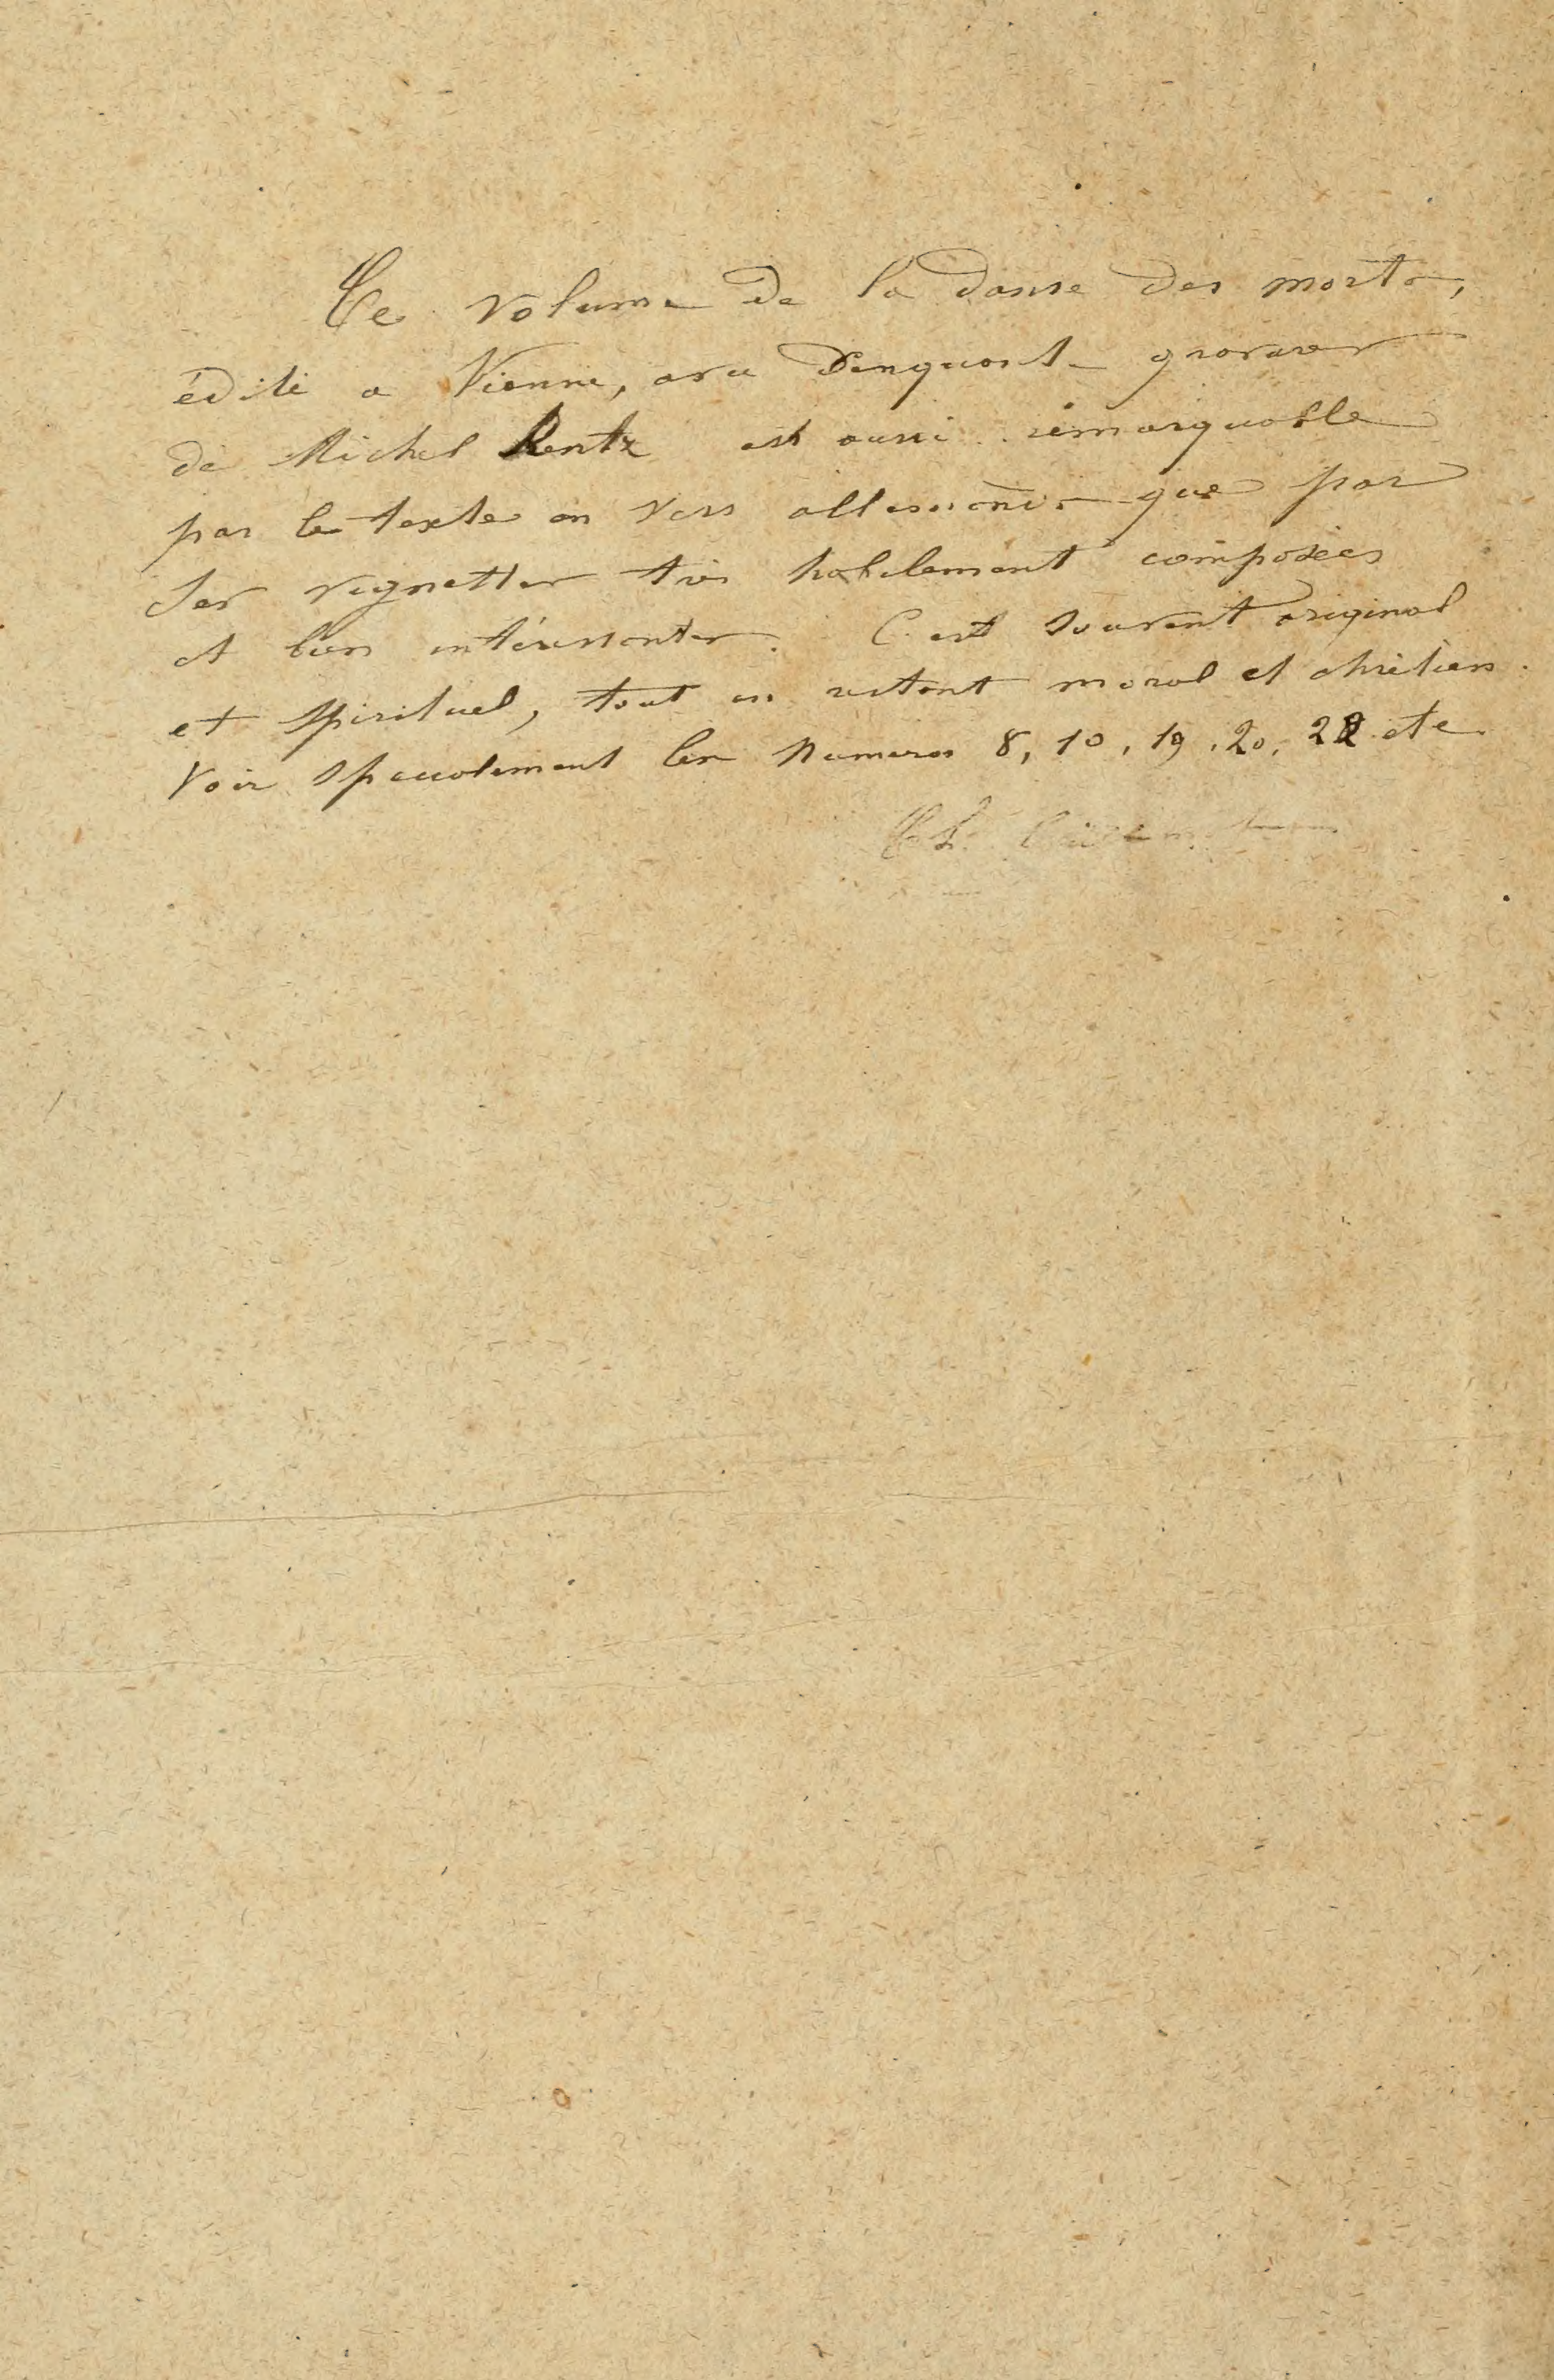 Ce volume de la danse des morts,
édité a Vienne, avec cinquante gravures
de Michel Rentz est aussi remarquable
par le texte en vers allemands que par
ses vignettes très habilement composées
et bien intéressantes. C'est souvent original
et spirituel, tout en restant moral et chrétien.
Voir specialement les numeros 8, 10, 19, 20, 22 etc